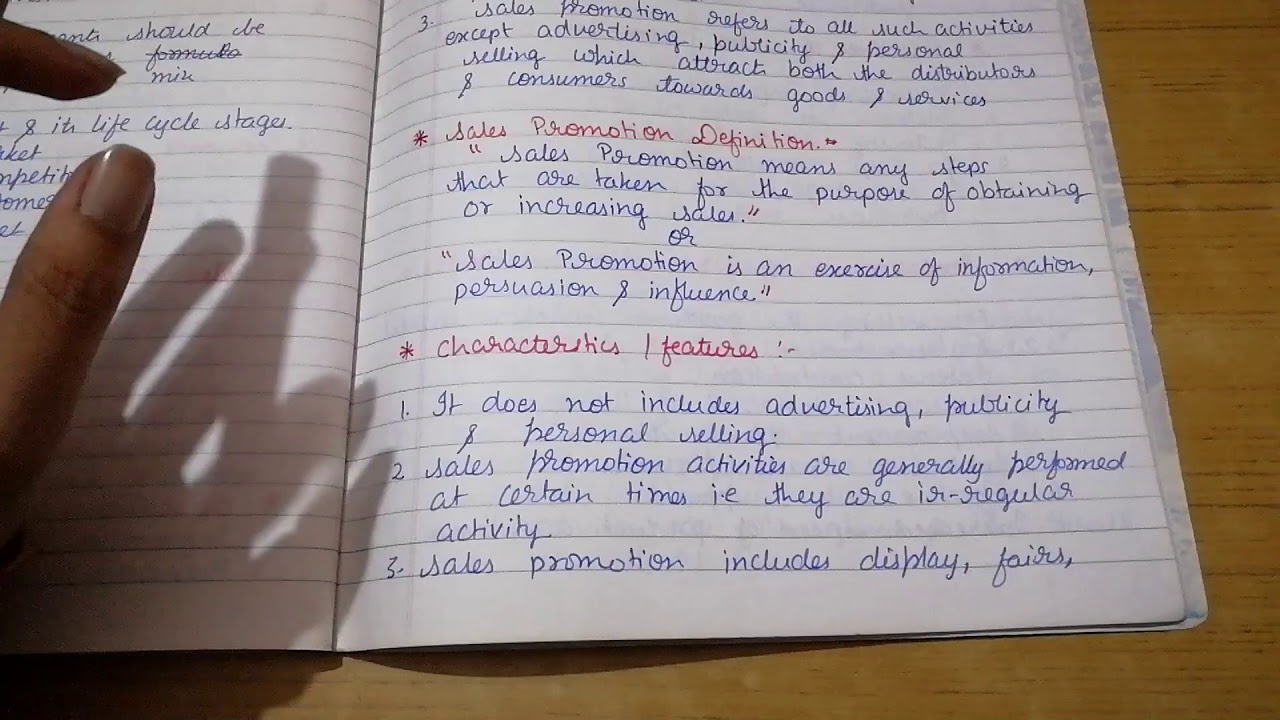 should be
formula
mix
& its life cycle stages.
3. Sales promotion refers to all such activities
except advertising, publicity & personal
selling which attract both the distributors
& consumers towards goods & services
* Sales Promotion Definition.-
" Sales Promotion means any steps
that are taken for the purpose of obtaining
or increasing sales."
or
"Sales Promotion is an exercise of information,
persuasion & influence"
* Characteristics / features :-
1. It does not includes advertising, publicity
& personal selling.
2 Sales promotion activities are generally performed
at certain times i.e they are ir-regular
activity
3. Sales promotion includes display, fairs,